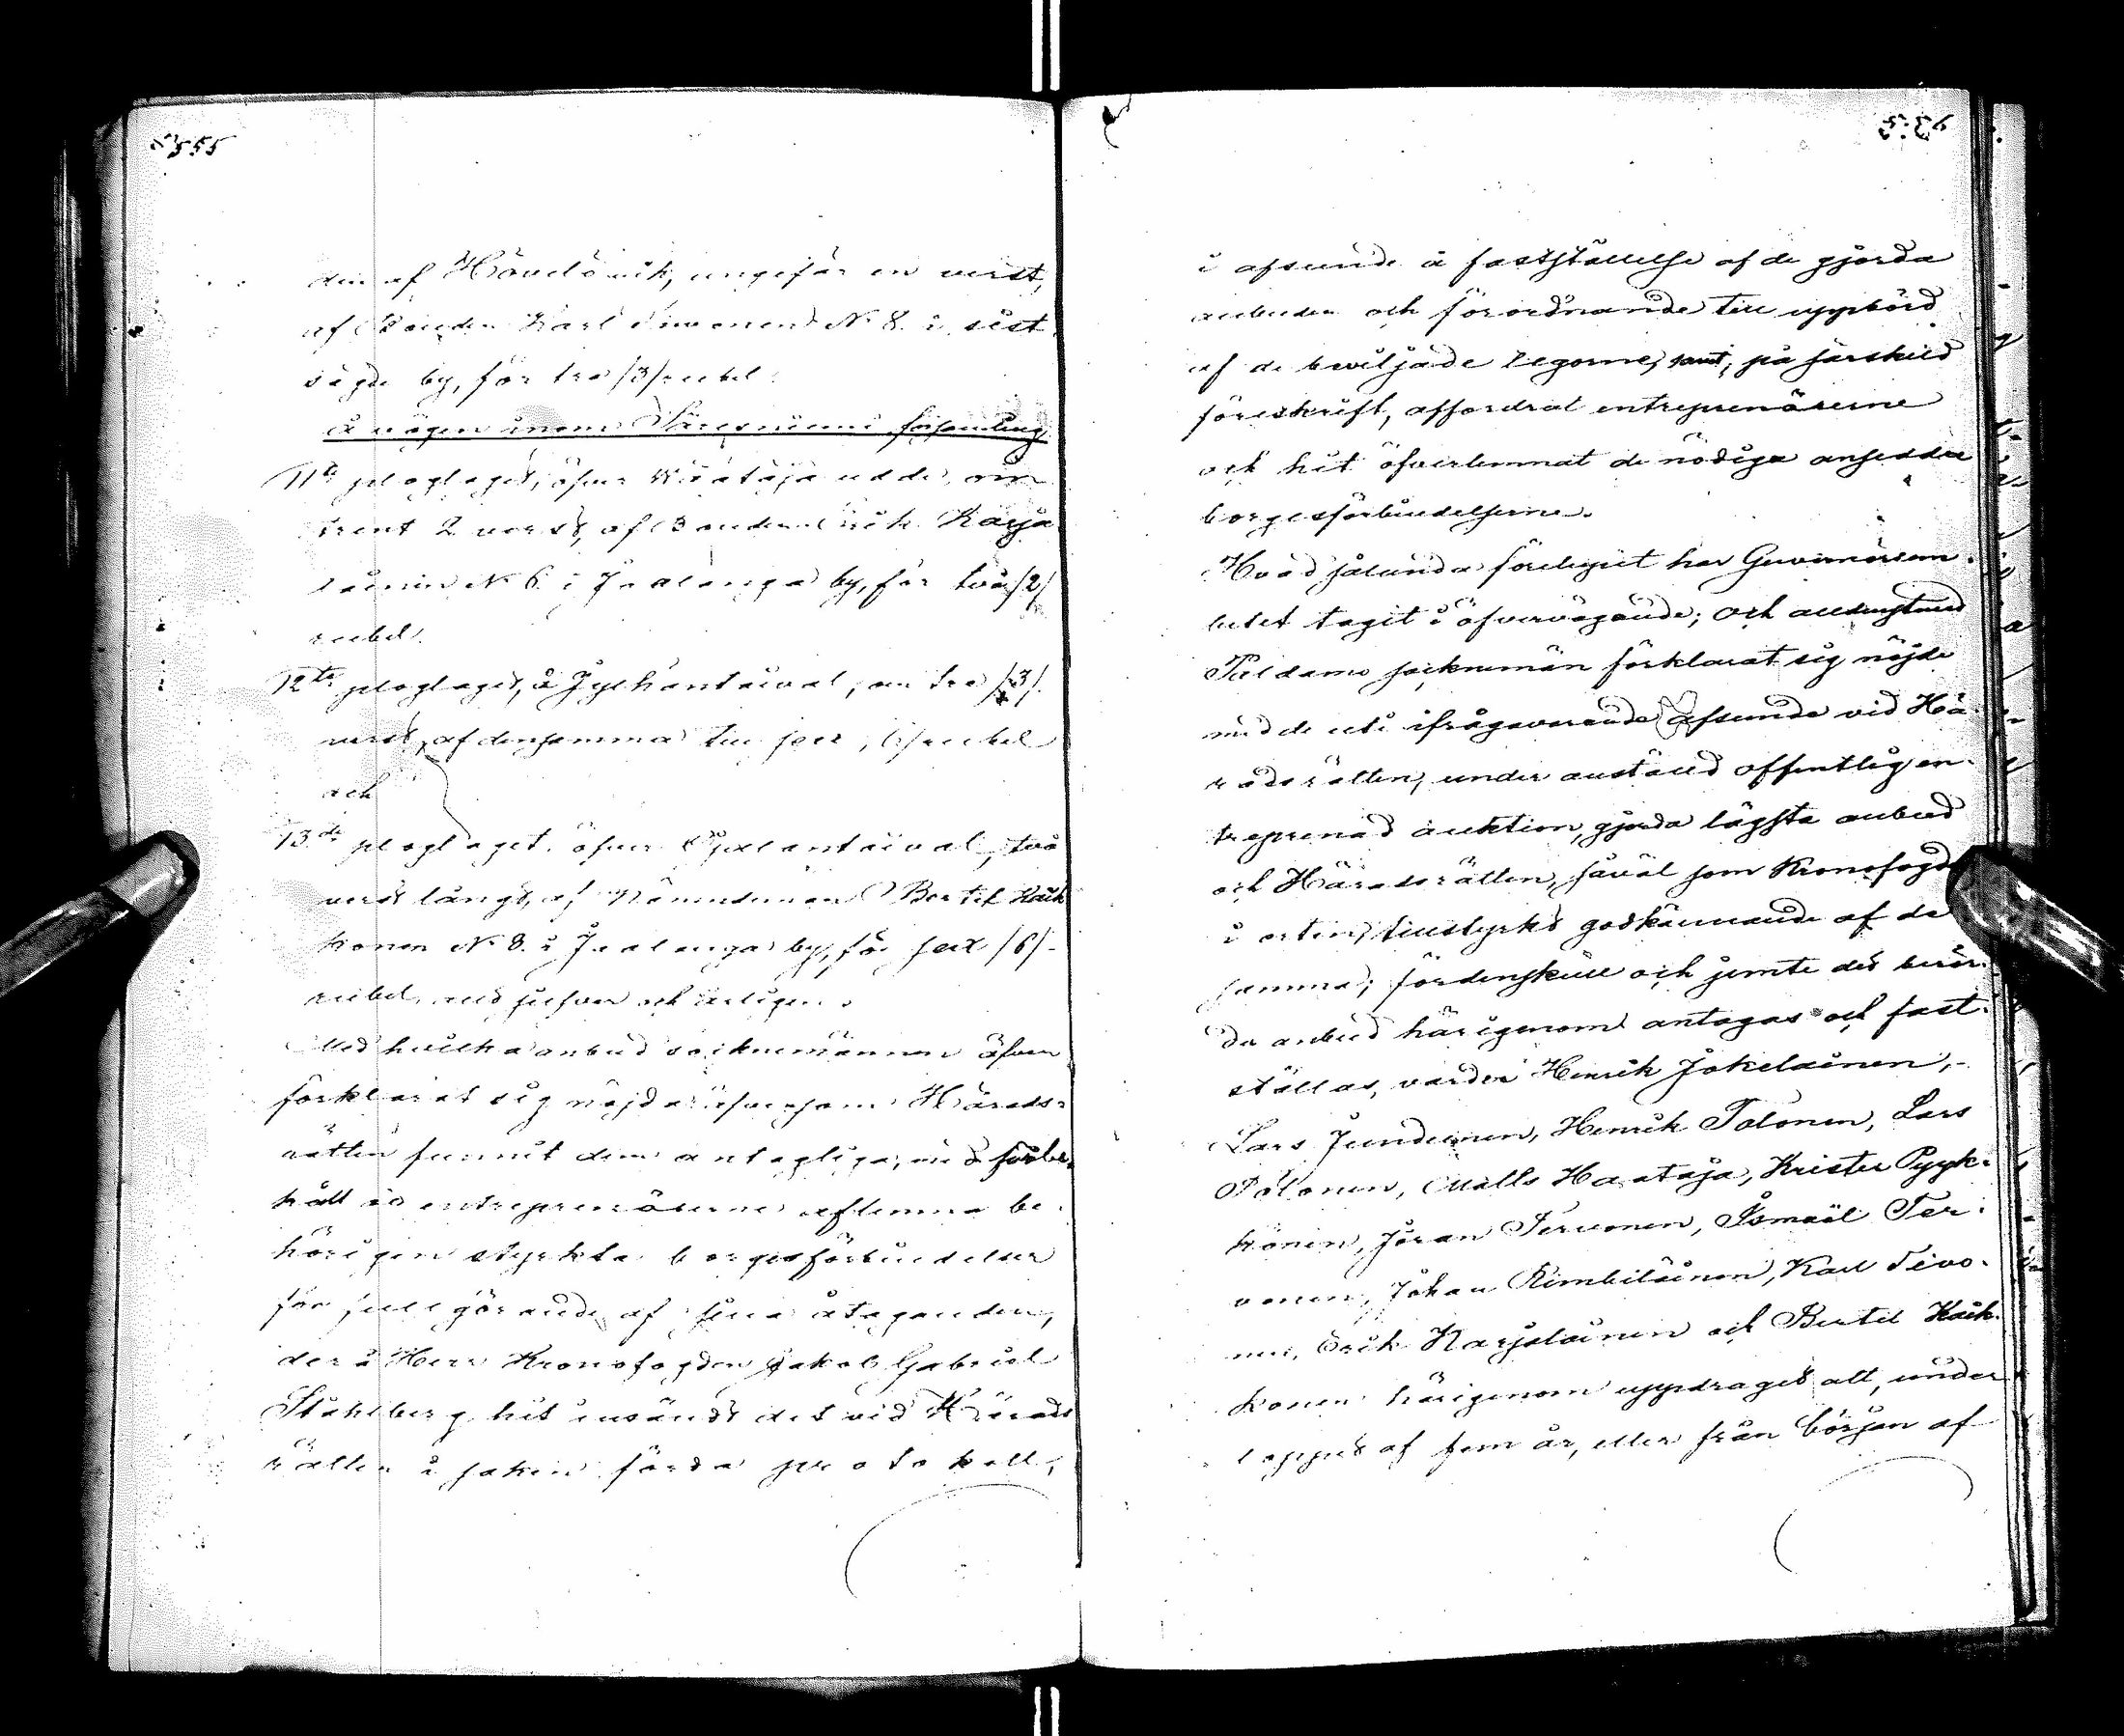 555
den af Hövelövik, ungefär en verst,
af Bonden Karl Tivonen N 8. i sist
sagde by, för tre /3/ rubel.
å vägen inom Säresniemi församling
11te ploglaget, öfver Kaataja udde, om
trent 2 verst, af Bonden Erik Karja
lainen N 6. i Jaalanga by, för två /2/
rubel.
12te ploglaget, å Jylhäntaival, om tre /3/.
verst, af densamma till sex /6/ rubel
och
13de ploglaget öfver taival, två
verst långt, af Nämndeman Bertil Kaik
konen N 8. i Jaalanga by, för sex /6/
rubel, allt silfver och årligen.
Med hvilka anbud socknemännen äfven
förklarat sig nöjda äfvensom Härads-
rätten funnit dem antagliga, med förbe-
håll at entreprenörerne aflemna be-
hörigen styrkta borgesförbindelser
för fullgörande af sina åtaganden,
der å Herr Kronofogden Jakob Gabriel
Ståhlberg hit insändt det vid Härads
rätten i saken förda protokoll,
i afseende å fastställelse af de gjorda
anbuden och förordnande till uppbörd
af de beviljade legorne, samt, på särskild
föreskrift, affordrat entreprenörerne
och hit öfverlemnat de nödiga ansedda
borgesförbindelserne.
Hvad sålunda förelupit har Guvernörsem-
betet tagit i öfvervägande; och alldenstund
Paldamo socknemän förklarat sig nöjde
med de uti ifrågavarande afseende vid Hä-
radsrätten, under anställd offentlig en-
treprenad auktion, gjorda lägsta anbud
och Häradsrätten, såväl som Kronofogde
i orten, tillstyrkt godkännande af de
samma; fördenskull och jemte det berör-
da anbud härigenom antagas och fast-
ställas, varder Henrik Jokelainen,
Lars Juntunen, Henrik Tolonen, Lars
Tolonen, Matts Haataja, Krister Pyyk-
könen, Jöran Tervonen, Ismaël Ter-
vonen, Johan Kimbiläinen, Karl Tivo-
nen, Erik Karjalainen och Bertil Kaik-
konen härigenom uppdraget att, under
loppet af fem år, eller från början af